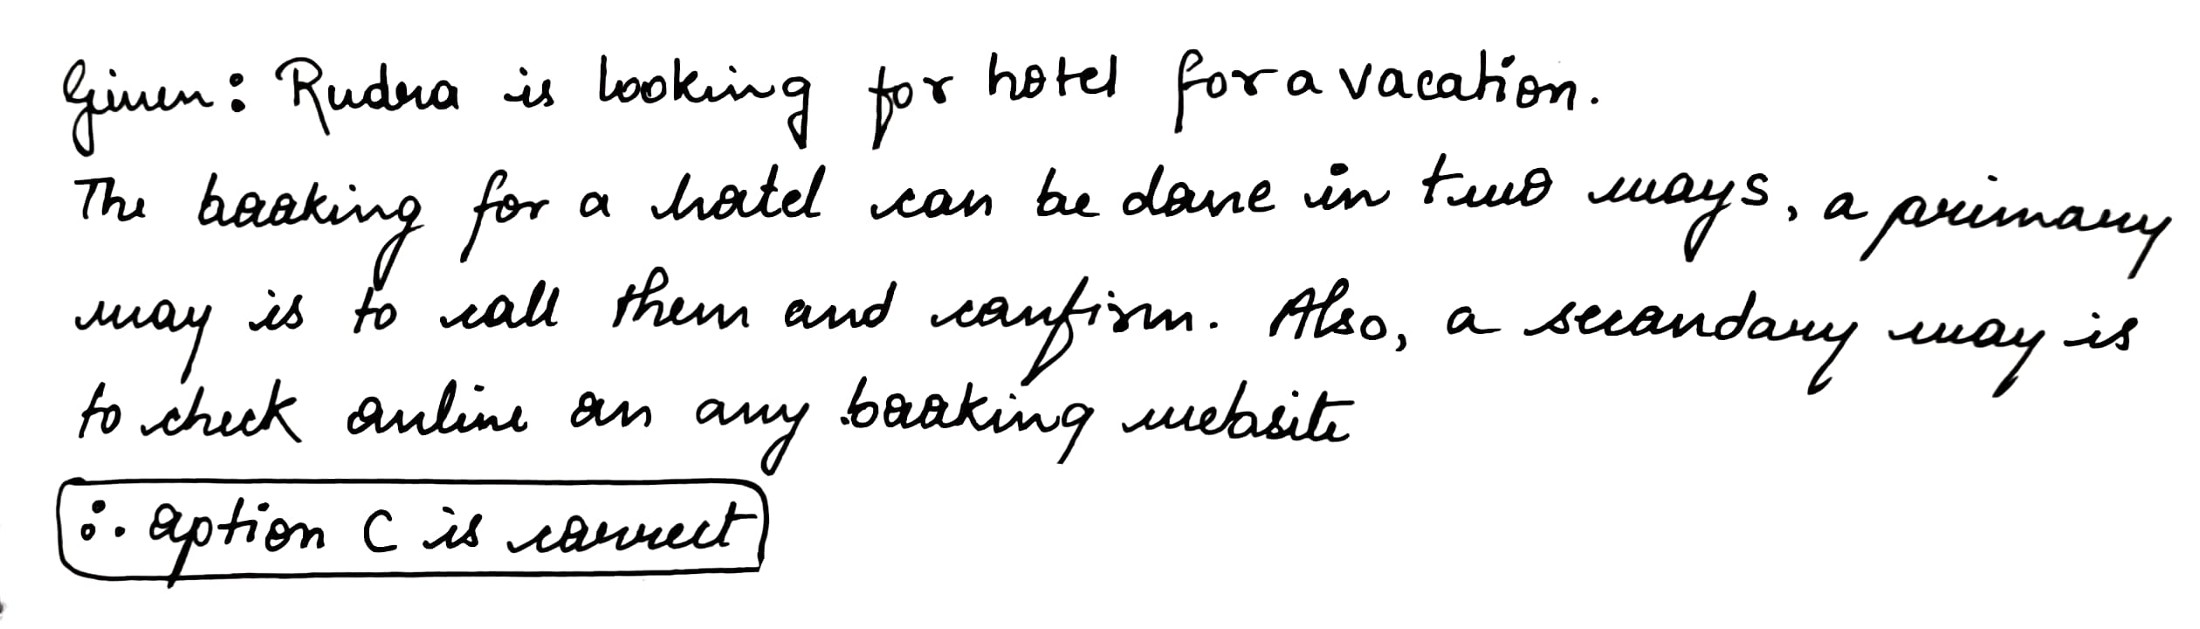 Given: Rudra is looking for hotel for a vacation.
The booking for a hotel can be done in two ways, a primary
way is to call them and confirm. Also, a secondary way is
to check online on any booking website
∴ option C is correct